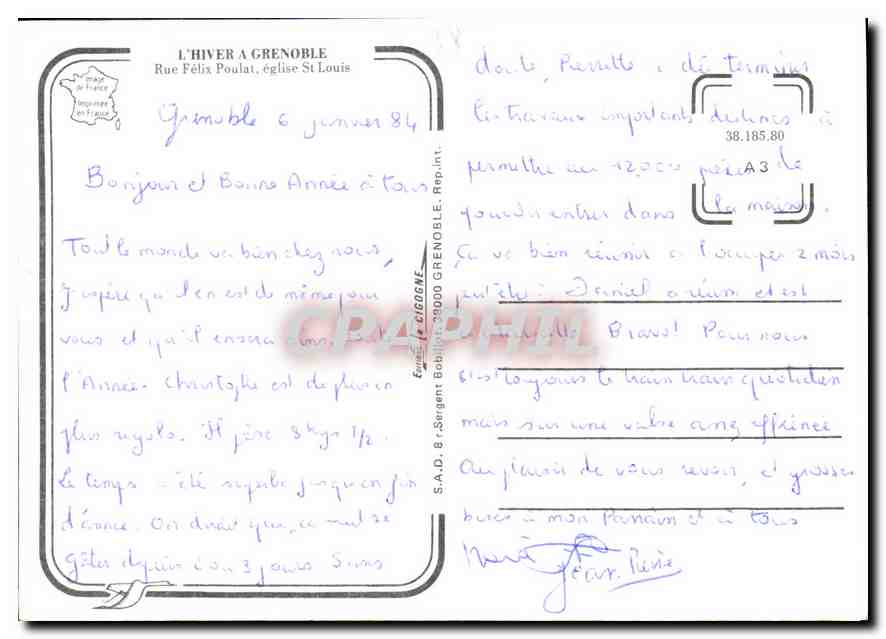 L'HIVER A GRENOBLE
Rue Félix Poulat, église St Louis
Image
de France
Imprimée
en France
Grenoble 6 janvier 84
Bonjour et Bonne Année à tous
Tout le monde va bien chez nous,
J'espère qu'il en est de même pour
vous et qu'il en sera ainsi
l'Année. Christophe est de plus en
plus rigolo. Il pèse 8 kgs 1/2.
Le temps a été superbe jusqu'en fin
d'année. On dirait que ça veut se
gâter depuis 2 ou 3 jours Sans
Editions la CIGOGNE
S.A.D. 8 r. Sergent Bobillot. 38000 GRENOBLE. Rep. int.
38.185.80
A 3
doute, Pierrette a dû terminer
les travaux importants destinés à
permettre au 12.000 pièces de
pouvoir entrer dans la maison.
Ça va bien réussir à l'occuper 2 mois
peut-être. Daniel a réussi et est
Bravo! Pour nous
c'est toujours le train train quotidien
mais sur une valse assez effrénée
Au plaisir de vous revoir, et grosses
bises à mon Parrain et à tous
Jean-Pierre
CPAPHIL